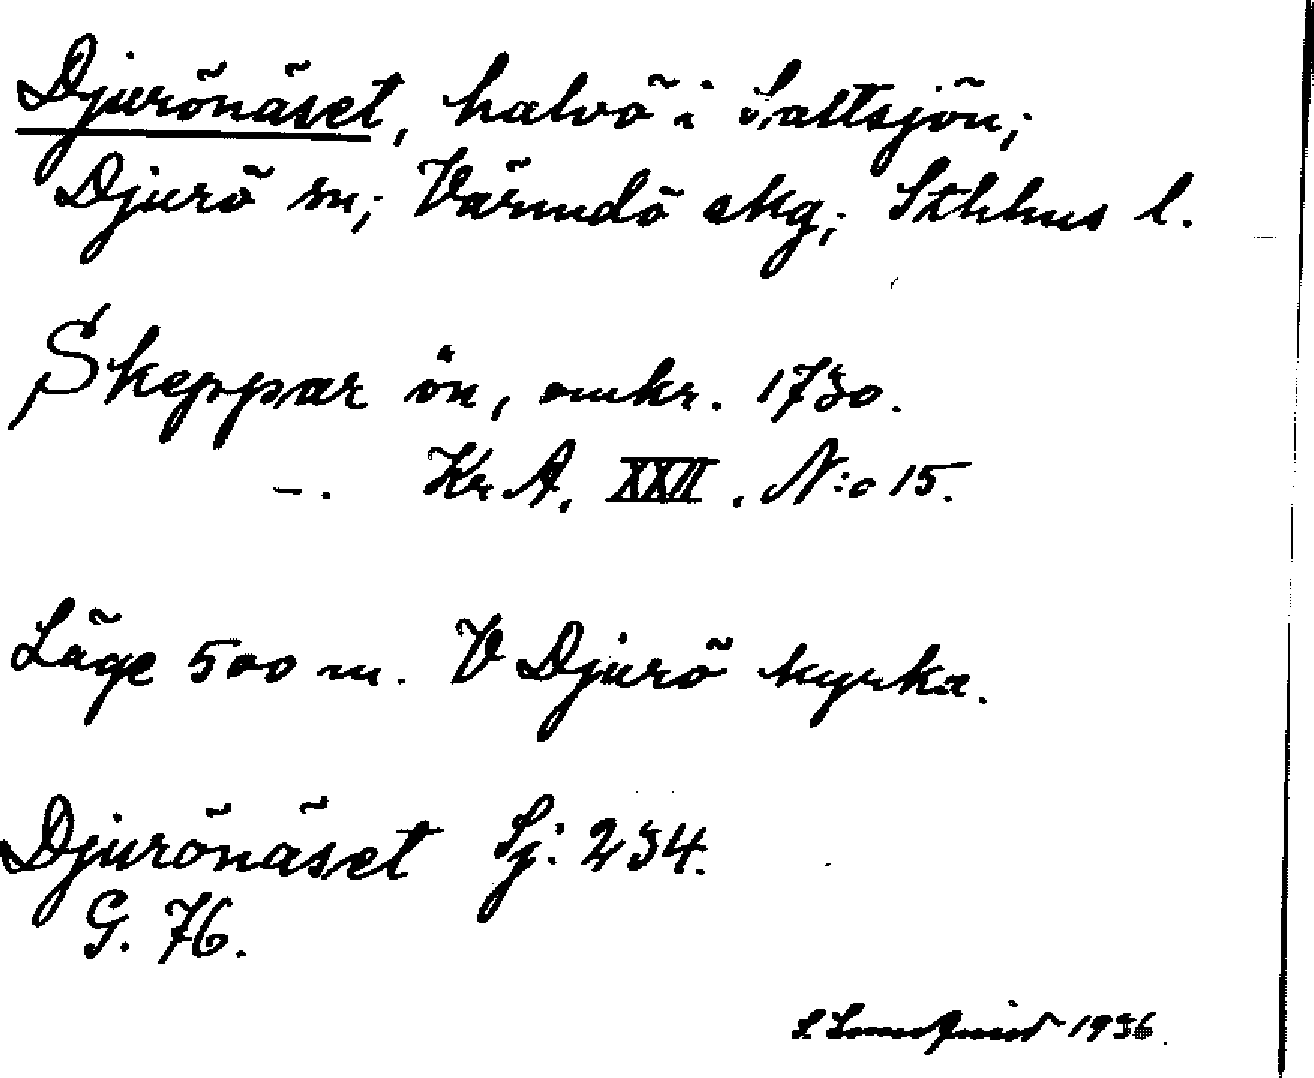 Djurönäset, halvö i Saltsjön;
Djurö sn; Värmdö skg; Sthlms l.
Skeppar ön, omkr. 1730.
–. Kr A. XXII. N:o 15.
Läge 500 m. V Djurö kyrka.
Djurönäset Sj: 234.
G. 76.
S. 1936.